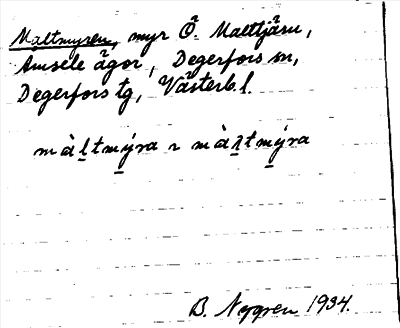 Maltmyren, myr Ö. Malttjärn,
Åmsele ägor, Degerfors sn,
Degerfors tg, Västerb. l.
màltmýra r màltmýra
B. Nygren 1934.